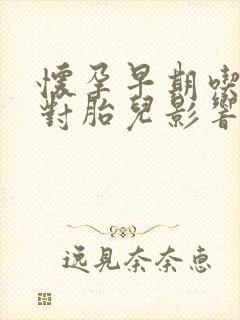 懷孕早期喫
對胎兒影響
逸見奈奈惠